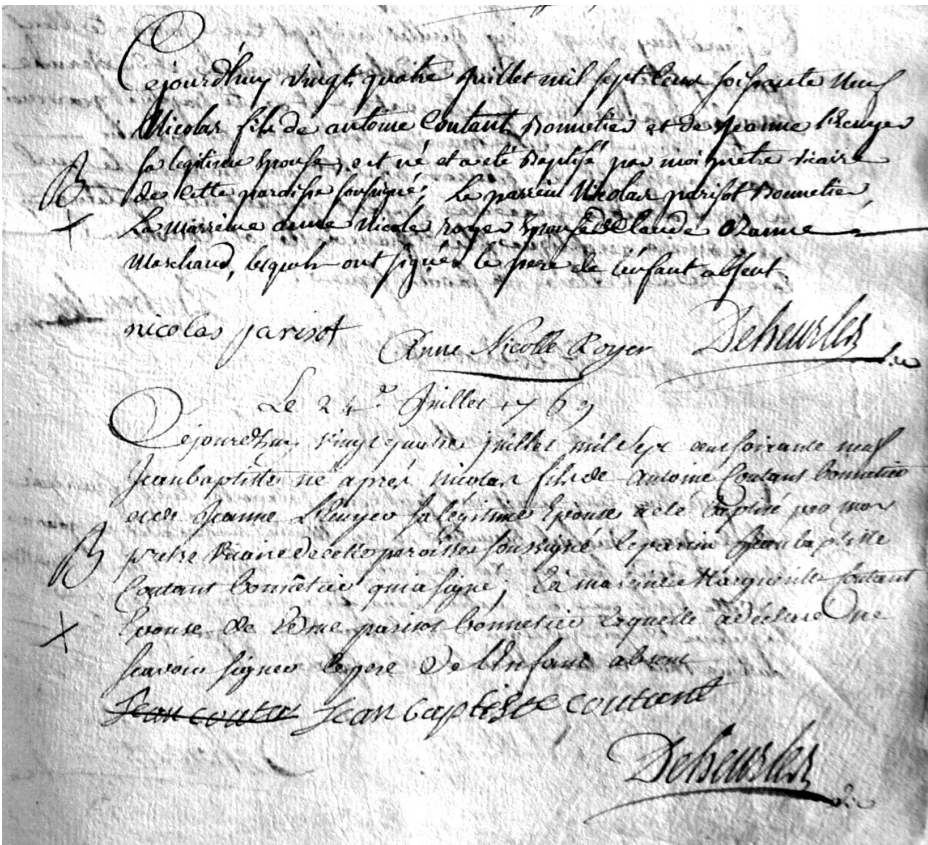 Cejourdhuy vingt quatre Juillet mil sept cens soixante neuf
Nicolas fils de antoine Coutant Bonnetier et de Jeanne Lecuyer
sa legitime epouse, est né et a été baptisé par moi pretre vicaire
B de cette paroisse soussigné; Le parrein Nicolas parisot Bonnetier,
+ La marreine anne Nicole royer epouse de Claude
Marchand, lesquels ont signés le pere de l'enfant absent.
nicolas parisot Anne Nicolle Royer Deheurles
Le 24e Juillet 1769
Cejourdhuy vingt quatre juillet mil sept cens soixante neuf
Jean baptiste né après nicolas fils de Antoine Coutant bonnetier
et de Jeanne L'Ecuyer sa légitime Epouse a été baptisé par moy
B pretre vicaire de cette paroisse soussigné le parrin Jean baptiste
Coutant bonnetier qui a signé, la marrine Marguerite Coutant
X Epouse de parisot bonnetier laquelle a déclaré ne
scavoir signer le pere de l'Enfant absent
Jean coutan Jean baptiste coutant
Deheurles